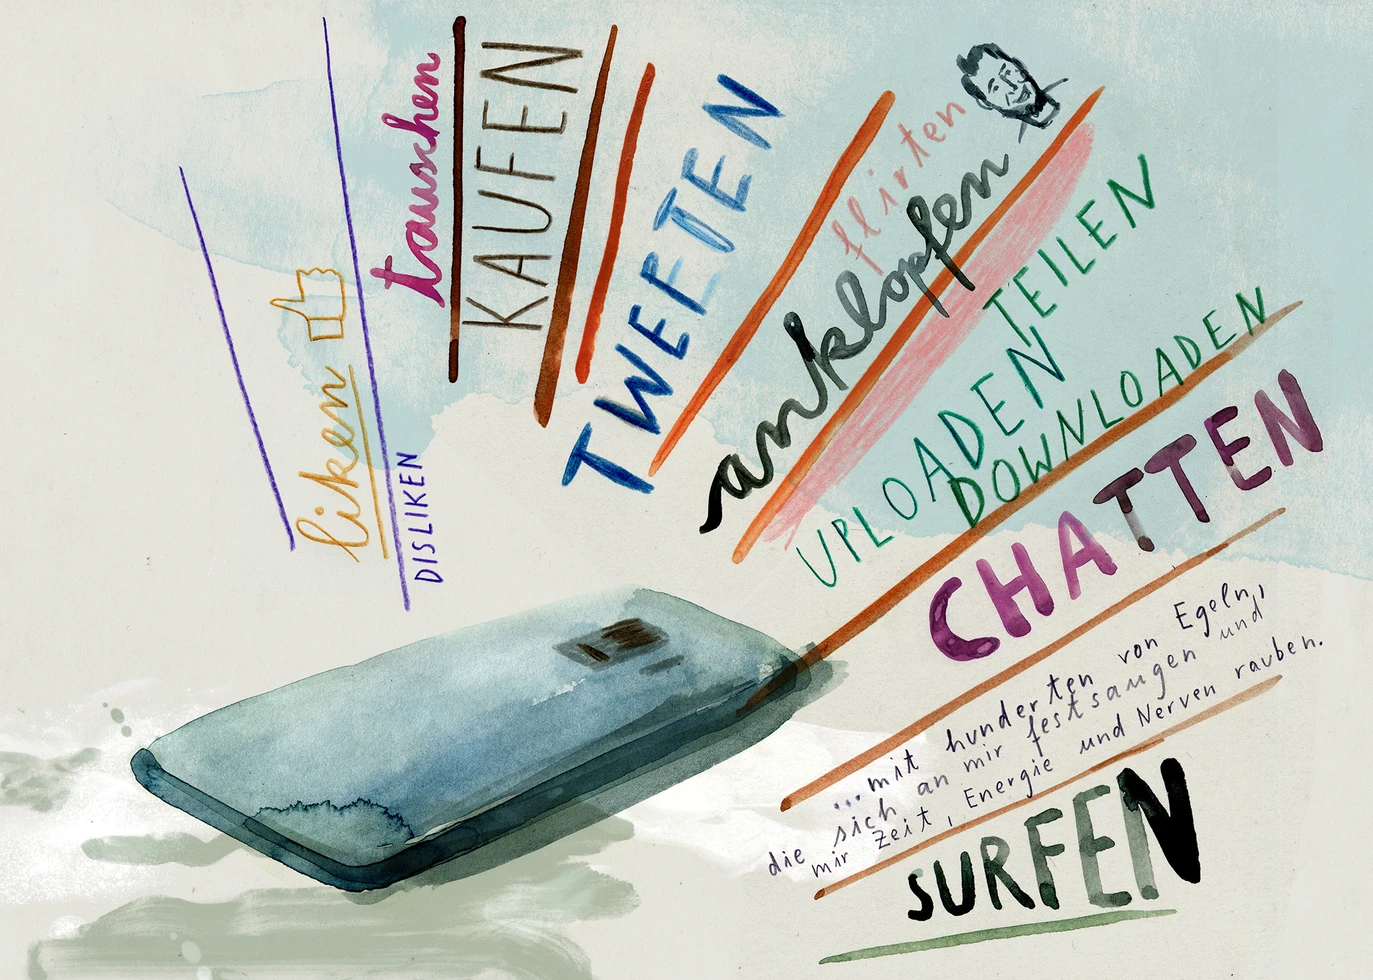 liken
DISLIKEN
tauschen
KAUFEN
TWEETEN
flirten
anklopfen
TEILEN
UPLOADEN
DOWNLOADEN
CHATTEN
...mit hunderten von Egeln,
die sich an mir festsaugen und
mir Zeit, Energie und Nerven rauben.
SURFEN